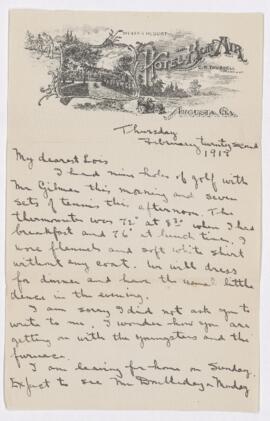 HOTEL BON AIR
AUGUSTA, GA.
Thursday
February twenty second
1918
My dearest Lois
I had nine holes of golf with
Mr Gilman this morning and seven
sets of tennis this afternoon. The
thermometer was 72° at 8³⁰ when I had
breakfast and 76° at lunch time. I
wore flannels and soft white shirt
without any coat. We will dress
for dinner and have the usual little
dance in the evening.
I am sorry I did not ask you to
write to me. I wonder how you are
getting on with the youngsters and the
furnace.
I am leaving for home on Sunday.
Expect to see Mr Doubleday on Monday